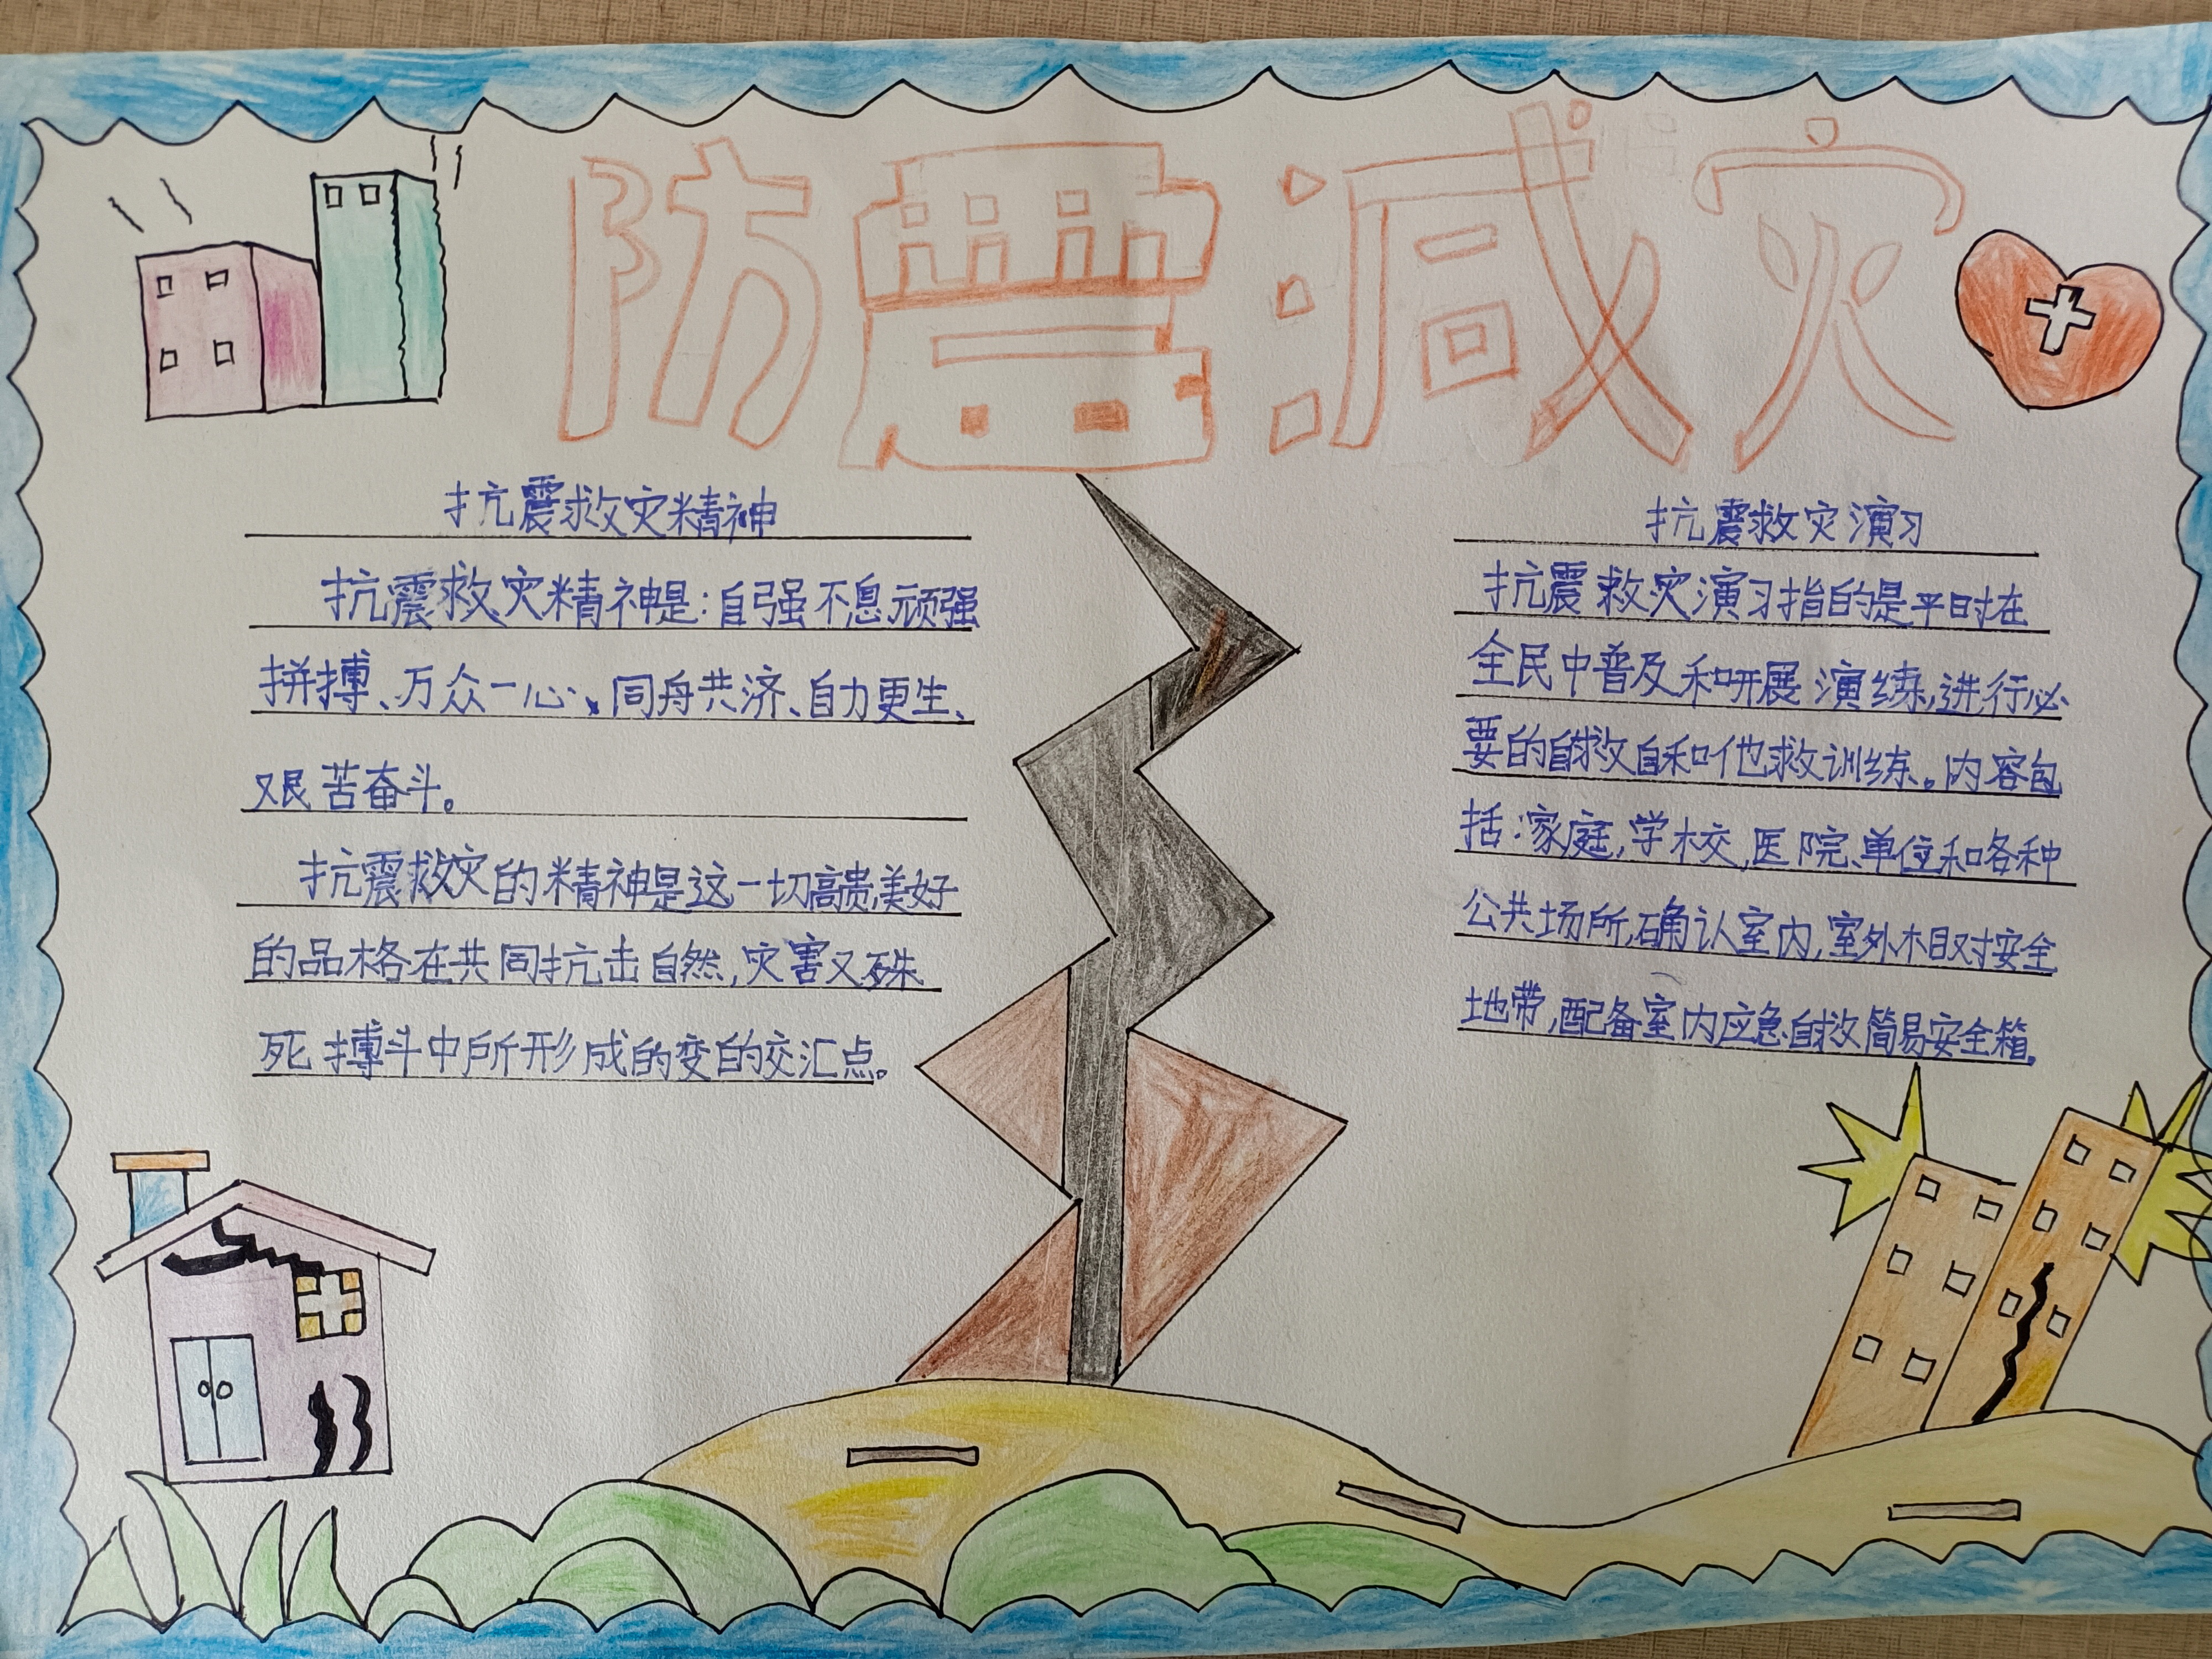 防震减灾
抗震救灾精神
抗震救灾精神是:自强不息顽强
拼搏、万众一心、同舟共济、自力更生、
艰苦奋斗。
抗震救灾的精神是这一切高贵,美好
的品格在共同抗击自然,灾害又殊
死搏斗中所形成的变的交汇点。
抗震救灾演习
抗震救灾演习指的是平时在
全民中普及和研展演练,进行必
要的自救自和他救训练。内容包
括:家庭,学校,医院、单位和各种
公共场所,确认室内,室外相对安全
地带,配备室内应急自救简易安全箱。